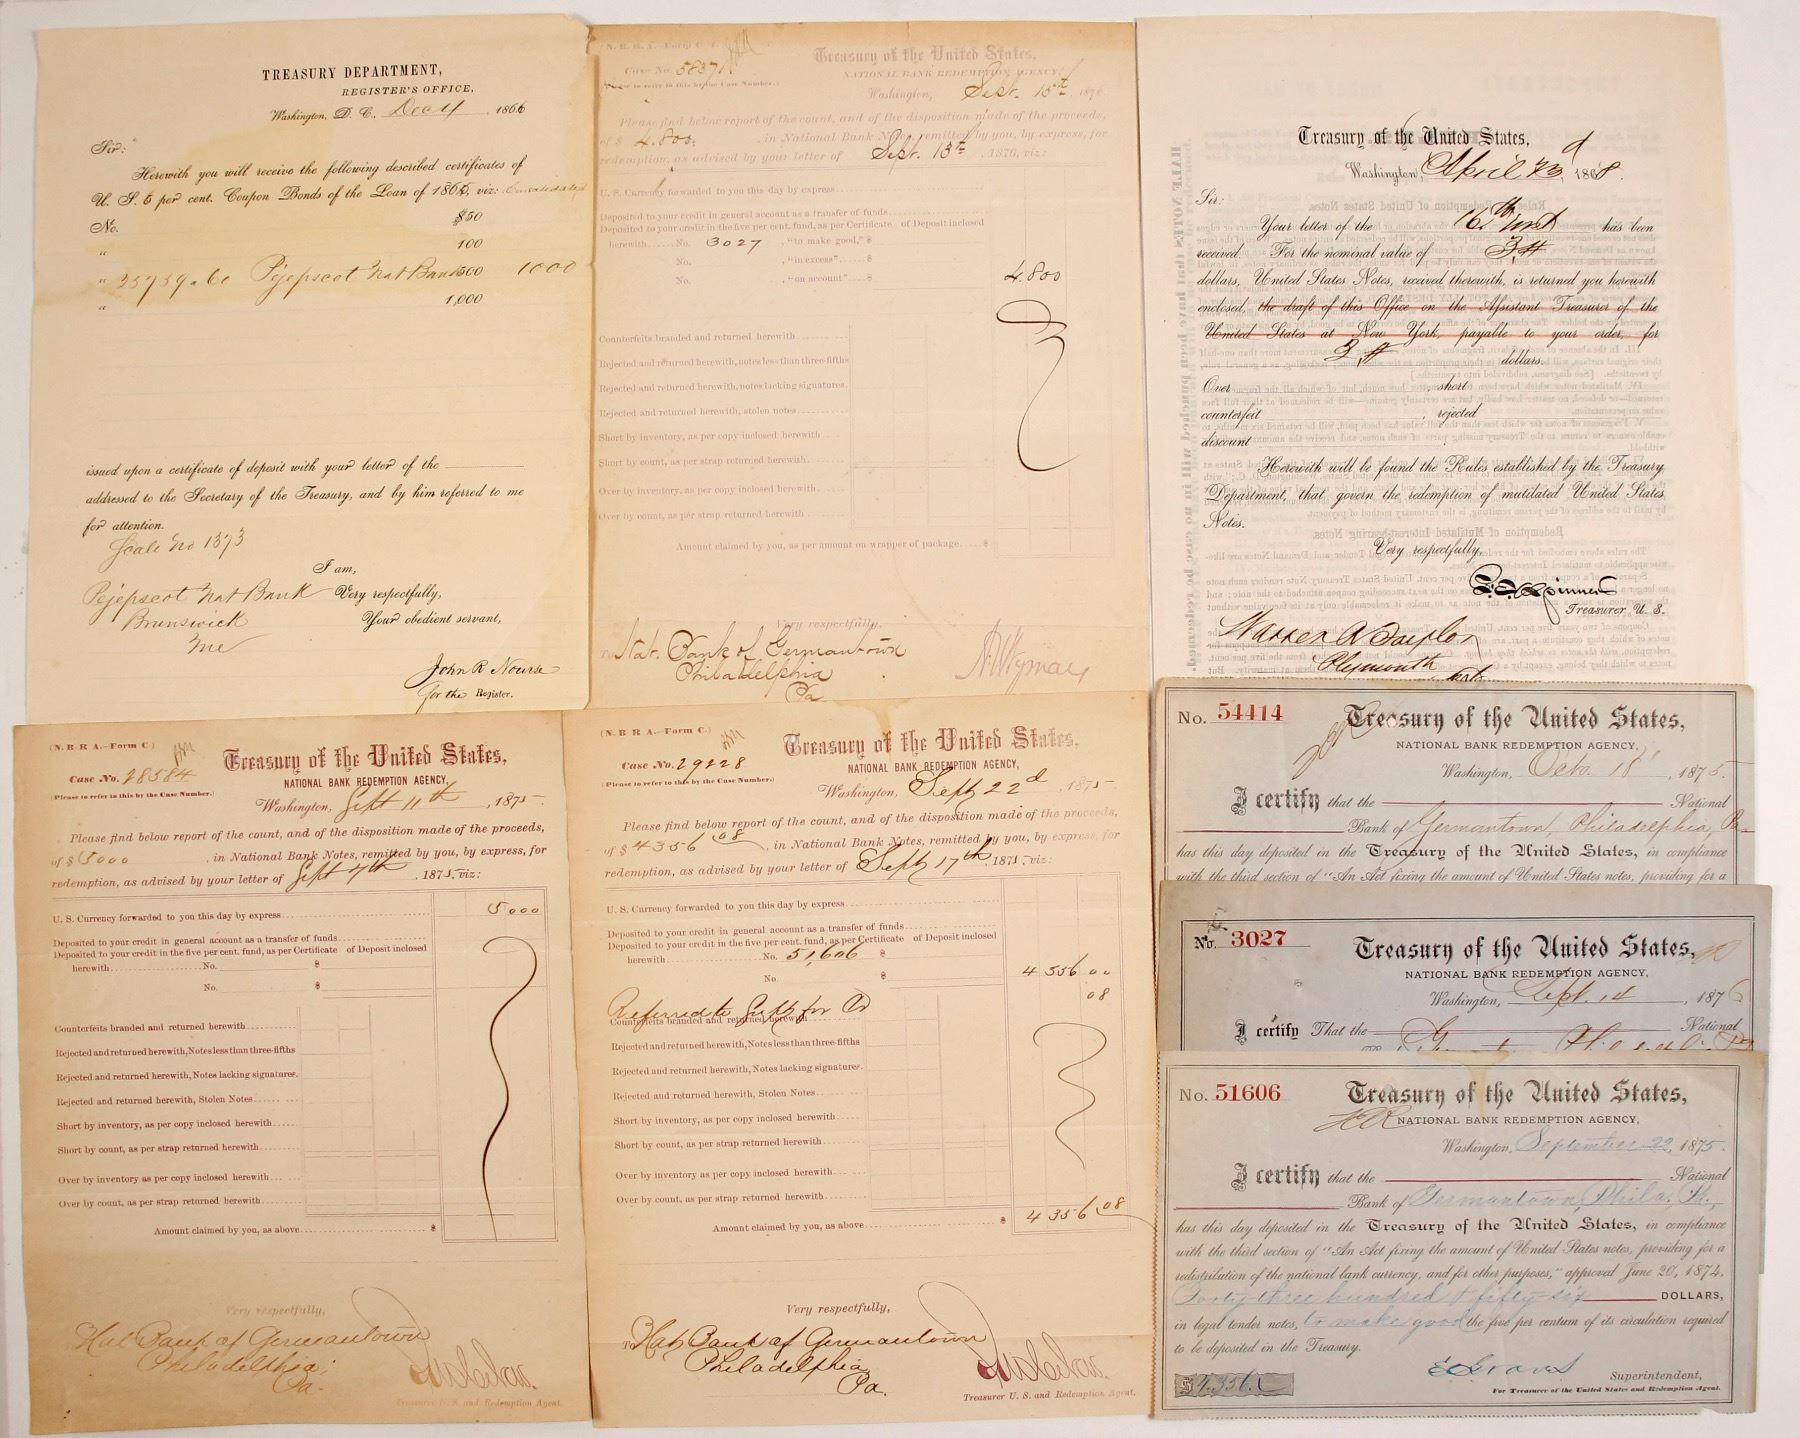 TREASURY DEPARTMENT,
REGISTER'S OFFICE,
Washington, D. C., Dec 4 1866
Sir:
Herewith you will receive the following described certificates of
U. S. 6 per cent. Coupon Bonds of the Loan of 1865, viz: Consolidated
No. $50
" 100
" 25759 a 60 Pejepscot Nat Bank 500 1000
" 1,000
issued upon a certificate of deposit with your letter of the
addressed to the Secretary of the Treasury, and by him referred to me
for attention.
Scale No 1373
I am,
Pejepscot Nat Bank Very respectfully,
Brunswick Your obedient servant,
Me
John R Nourse
for the Register.
(N. B. R. A.—Form C
Case No. 58371
(Please to refer to this by the Case Number.)
Treasury of the United States,
NATIONAL BANK REDEMPTION AGENCY,
Washington, Sept. 15th, 1876
Please find below report of the count, and of the disposition made of the proceeds,
of $ 4.800. in National Bank Notes, remitted by you, by express, for
redemption, as advised by your letter of Sept. 13th 1876, viz:
U. S. Currency forwarded to you this day by express
Deposited to your credit in general account as a transfer of funds
Deposited to your credit in the five per cent. fund, as per Certificate of Deposit inclosed
herewith No. 3027, "to make good," $
No. , "in excess" $
No. , "on account" $ 4.800
Counterfeits branded and returned herewith
Rejected and returned herewith, notes less than three-fifths
Rejected and returned herewith, notes lacking signatures.
Rejected and returned herewith, stolen notes
Short by inventory, as per copy inclosed herewith
Short by count, as per strap returned herewith
Over by inventory, as per copy inclosed herewith
Over by count, as per strap returned herewith
Amount claimed by you, as per amount on wrapper of package $
Very respectfully,
To Nat. Bank of Germantown
Philadelphia
Pa
A. U. Wyman
Treasury of the United States,
Washington, April 23d, 1868.
Sir:
Your letter of the 16th inst has been
received. For the nominal value of 3.#
dollars, United States Notes, received therewith, is returned you herewith
enclosed, the draft of this Office on the Assistant Treasurer of the
United States at New York, payable to your order, for
3.# dollars.
Over , short
counterfeit , rejected
discount
Herewith will be found the Rules established by the Treasury
Department, that govern the redemption of mutilated United States
Notes.
Very respectfully,
F. E. Spinner
Treasurer U. S.
Plymouth
(N. B. R. A.—Form C.)
Case No. 28584
(Please to refer to this by the Case Number.)
Treasury of the United States,
NATIONAL BANK REDEMPTION AGENCY,
Washington, Sept 11th, 1875.
Please find below report of the count, and of the disposition made of the proceeds,
of $ 5000 , in National Bank Notes, remitted by you, by express, for
redemption, as advised by your letter of Sept 7th 1875, viz:
U. S. Currency forwarded to you this day by express 5000
Deposited to your credit in general account as a transfer of funds
Deposited to your credit in the five per cent. fund, as per Certificate of Deposit inclosed
herewith No. $
No. $
Counterfeits branded and returned herewith
Rejected and returned herewith, Notes less than three-fifths
Rejected and returned herewith, Notes lacking signatures.
Rejected and returned herewith, Stolen Notes
Short by inventory, as per copy inclosed herewith
Short by count, as per strap returned herewith
Over by inventory as per copy inclosed herewith
Over by count, as per strap returned herewith
Amount claimed by you, as above $
Very respectfully,
Nat Bank of Germantown
Philadelphia
Pa.
Treasurer U. S. and Redemption Agent.
(N. B. R. A.—Form C.)
Case No. 29228
(Please to refer to this by the Case Number.)
Treasury of the United States,
NATIONAL BANK REDEMPTION AGENCY,
Washington, Sept 22d, 1875.
Please find below report of the count, and of the disposition made of the proceeds,
of $ 4356.08 , in National Bank Notes, remitted by you, by express, for
redemption, as advised by your letter of Sept 17th 1875, viz:
U. S. Currency forwarded to you this day by express
Deposited to your credit in general account as a transfer of funds
Deposited to your credit in the five per cent. fund, as per Certificate of Deposit inclosed
herewith No. 51,606 $
No. $ 4356 00
08
Referred to
Counterfeits branded and returned herewith
Rejected and returned herewith, Notes less than three-fifths
Rejected and returned herewith, Notes lacking signatures.
Rejected and returned herewith, Stolen Notes
Short by inventory, as per copy inclosed herewith
Short by count, as per strap returned herewith
Over by inventory as per copy inclosed herewith
Over by count, as per strap returned herewith
Amount claimed by you, as above $ 4356.08
Very respectfully,
To Nat Bank of Germantown
Philadelphia
Pa.
Treasurer U. S. and Redemption Agent.
No. 54414
Treasury of the United States,
NATIONAL BANK REDEMPTION AGENCY,
Washington, Octo. 18, 1875.
I certify that the National
Bank of Germantown, Philadelphia, Pa
has this day deposited in the Treasury of the United States, in compliance
with the third section of "An Act fixing the amount of United States notes, providing for a
No. 3027
Treasury of the United States,
NATIONAL BANK REDEMPTION AGENCY,
Washington, Sept. 14, 1876
I certify That the National
No. 51606
Treasury of the United States,
NATIONAL BANK REDEMPTION AGENCY,
Washington, September 22, 1875.
I certify that the National
Bank of Germantown, Phila. Pa.,
has this day deposited in the Treasury of the United States, in compliance
with the third section of "An Act fixing the amount of United States notes, providing for a
redistribution of the national bank currency, and for other purposes," approved June 20, 1874,
Forty-three hundred & fifty-six DOLLARS,
in legal tender notes, to make good the five per centum of its circulation required
to be deposited in the Treasury.
$4,356.
Superintendent,
For Treasurer of the United States and Redemption Agent.